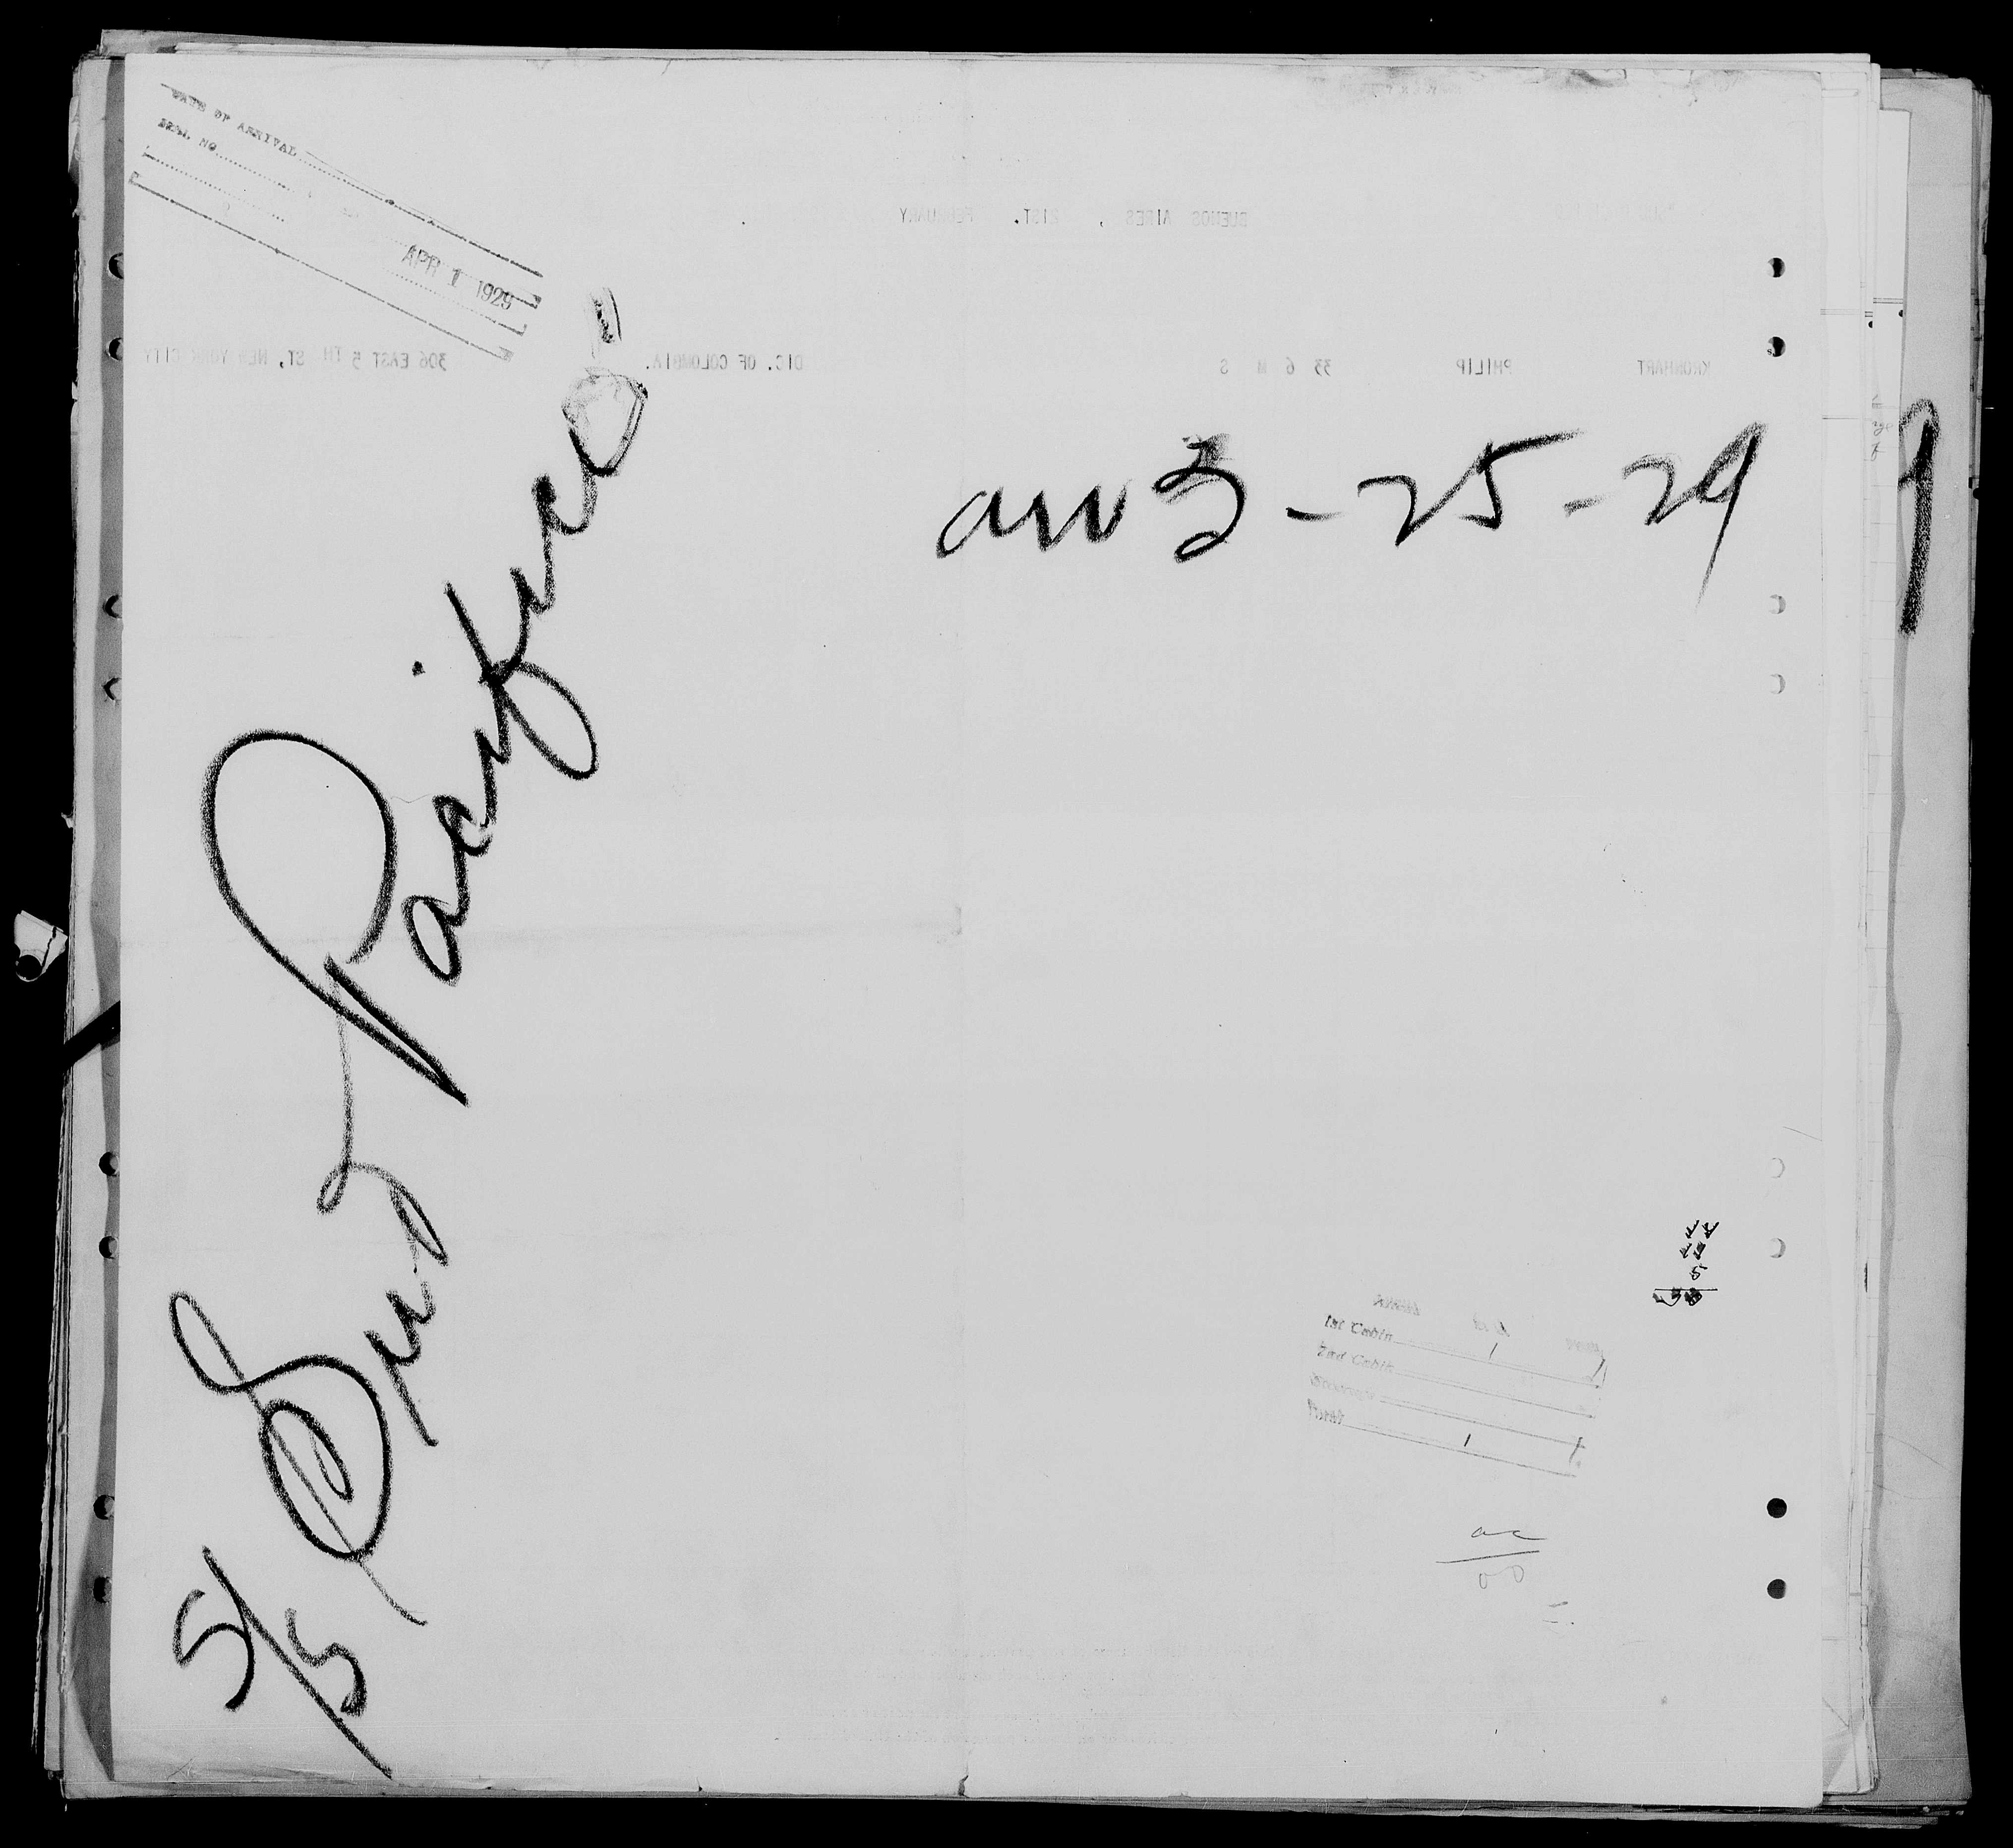 DATE OF ARRIVAL
SERI. NO.
APR 1 1929
BUENOS AIRES , 21ST. FEBRUARY
KRONHART PHILIP 33 6 M S DIC. OF COLOMBIA. 306 EAST 5 TH ST, NEW YORK CITY
arr 3-25-29
9
S/S Sud Pacifico
5
1st Cabin 1
2nd Cabin
Steerage
Total 1 1